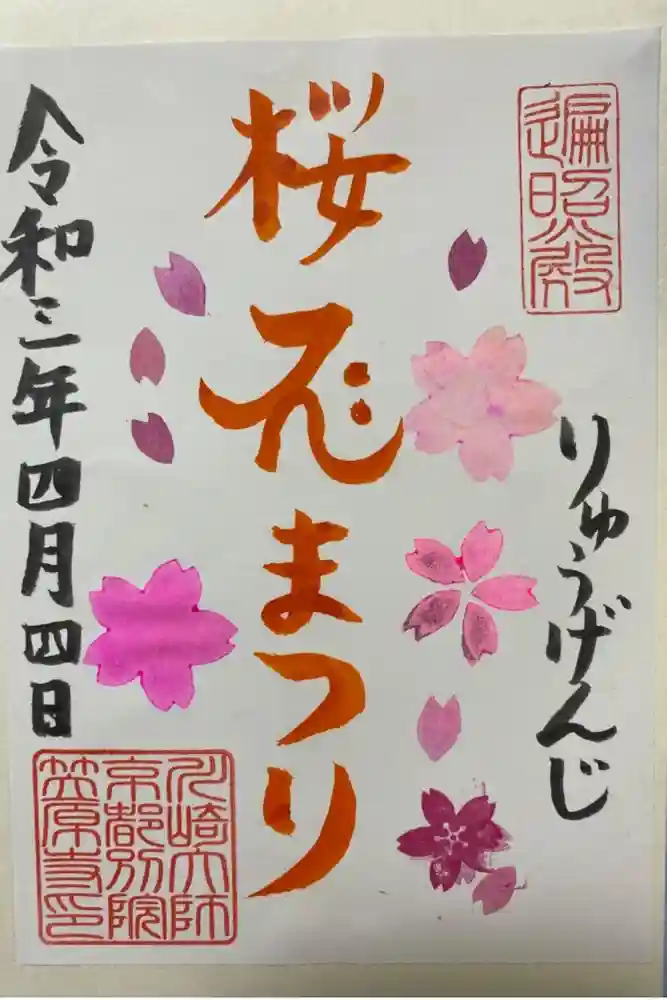 遍照殿
りゅうげんじ
桜花まつり
令和三年四月四日
川崎大師
京都別院
笠原寺印